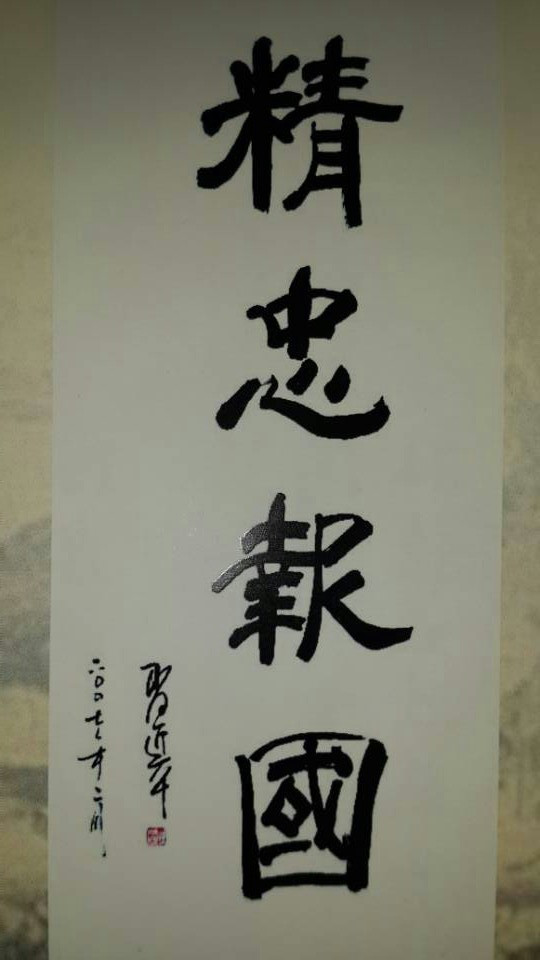 精忠報國
習近平
二〇〇七年二月